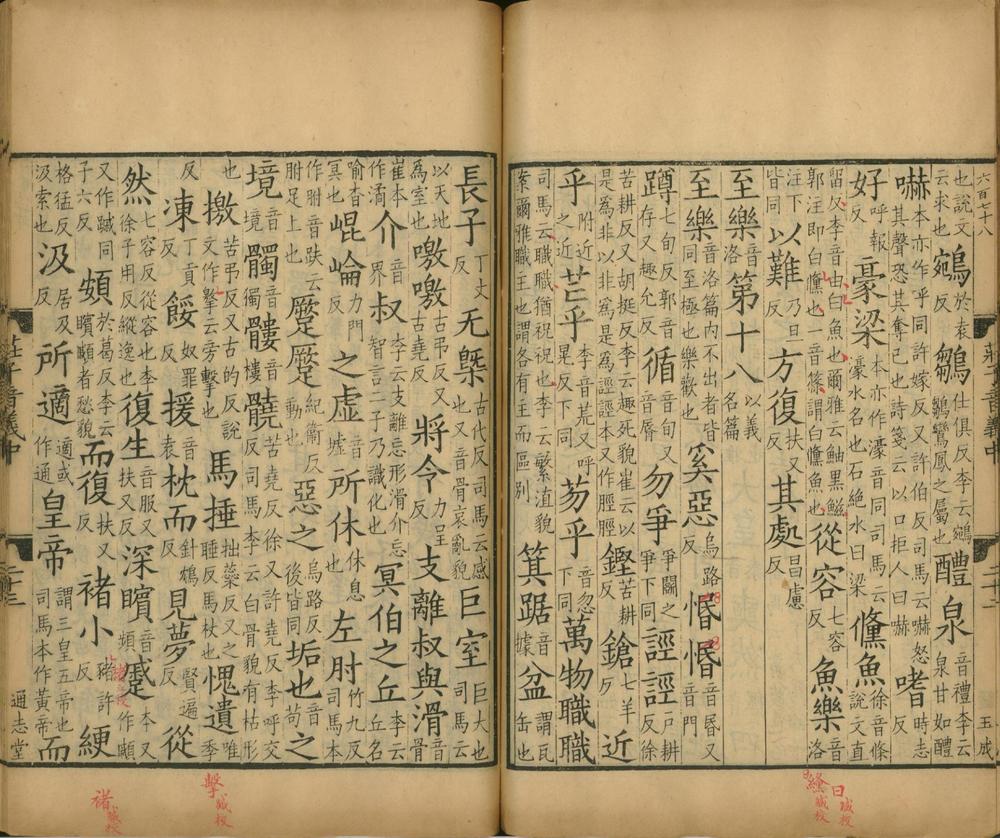 六百七十八
玉成
也說文云求也鵷於袁反鶵仕俱反李云鵷鶵鸞鳳之屬也醴泉音禮李云泉甘如醴
嚇本亦作呼同許嫁反又許伯反司馬云嚇怒其聲恐其奪己也詩箋云以口拒人曰嚇嗜時志反
好呼報反豪梁本亦作濠音同司馬云濠水名也石絕水曰梁鯈魚徐音條說文直
留反李音由白魚也爾雅云鮂黑鰦郭注即白鯈也一音篠謂白鯈魚也從容七容反魚樂音洛
注下皆同以難乃旦反方復扶又反其處昌慮反
至樂音洛第十八以義名篇
至樂音洛篇內不出者皆同至極也樂歡也奚惡烏路反惛惛音昬又音門
蹲七旬反郭音存又趣允反循音旬又音脣勿爭爭鬭之爭下同誙誙戶耕反徐
苦耕反又胡挺反李云趣死貌崔云以是為非以非為是為誙誙本又作脛脛鏗苦耕反鎗七羊反近
乎附近之近芒乎李音荒又呼晃反下同芴乎音忽下同萬物職職
司馬云職職猶祝祝也李云繁殖貌案爾雅職主也謂各有主而區別箕踞音據盆謂瓦缶也
長子丁丈反无槩古代反司馬云感也又音骨哀亂貌巨室巨大也司馬云
以天地為室也噭噭古弔反又古堯反將令力呈反支離叔與滑音骨
崔本作潏介音界叔李云支離忘形滑介忘智言二子乃識化也冥伯之丘李云丘名
喻杳冥也崐崘力門反之虛音墟所休休息也左肘竹九反司馬本
作胕音趺云胕足上也蹷蹷紀衞反動也惡之烏路反後皆同垢也音苟之
境音境髑音獨髏音樓髐苦堯反徐又許堯反李呼交反司馬李云白骨貌有枯形
也撽苦弔反又古的反說文作擊云旁擊也馬捶拙蘂反又之睡反馬杖也愧遺唯季
反凍丁貢反餒奴罪反援音袁枕而針鴆反見夢賢遍反從
然七容反從容也李徐子用反縱逸也復生音服又扶又反深矉音頻蹙本又作顣
又作䠞同子六反頞於葛反李云矉顣者愁貌而復扶又反褚小豬許反綆
格猛反汲索也汲居及反所適適或作通皇帝謂三皇五帝也司馬本作黃帝而
莊子音義中
二十三
通志堂